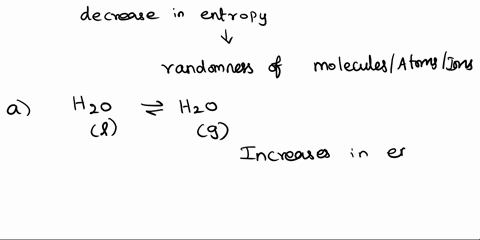 decrease in entropy
↓
randomness of molecules/Atoms/Ions
a) H2O ⇌ H2O
(l) (g)
Increases in er